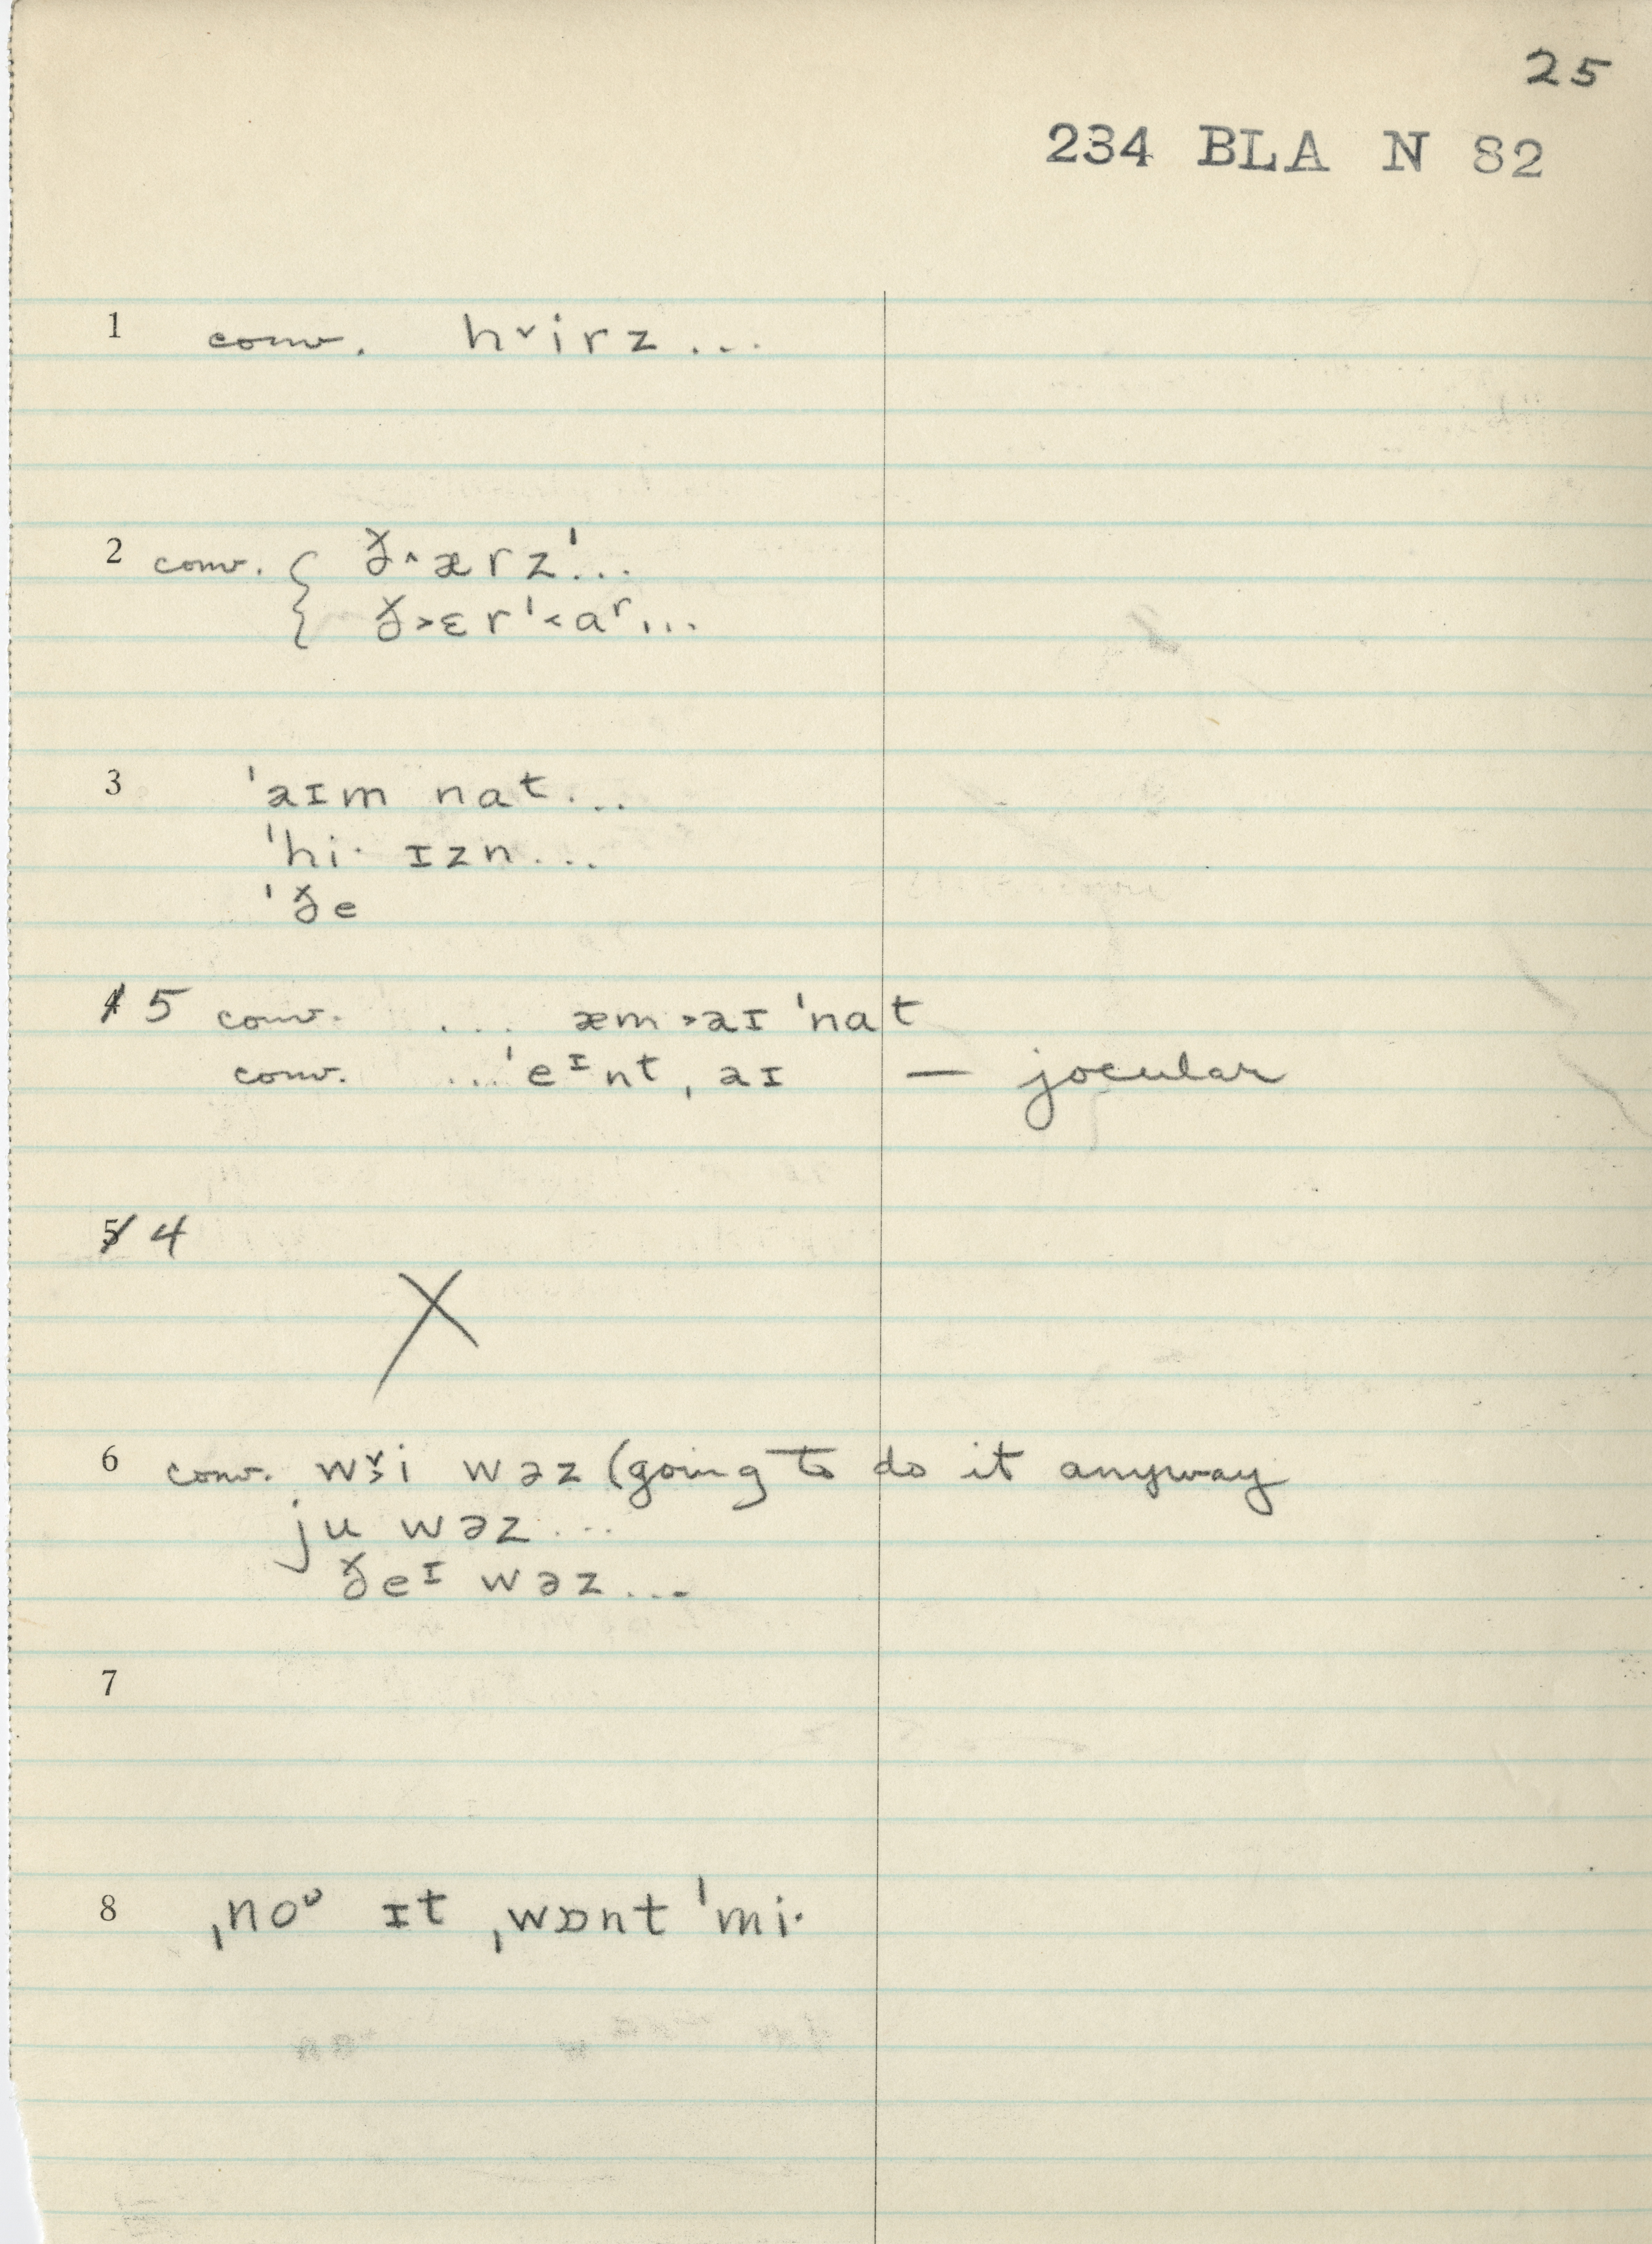 25
234 BLA N 82
1 conv. h˅irz...
2 conv. { ð˄ærzˈ...
{ ð˃ɛrˈ˂aʳ...
3 ˈaɪm nat...
ˈhi· ɪzn...
ˈðe
4 5 conv. ... æm˃aɪ ˈnat
conv. ...ˈeᶦnt, aɪ — jocular
5 4
X
6 conv. w˅ɜi wəz (going to do it anyway
ju wəz...
ðeᶦ wəz...
7
8 ˌnoᶷ ɪt ˌwɒnt ˈmi·